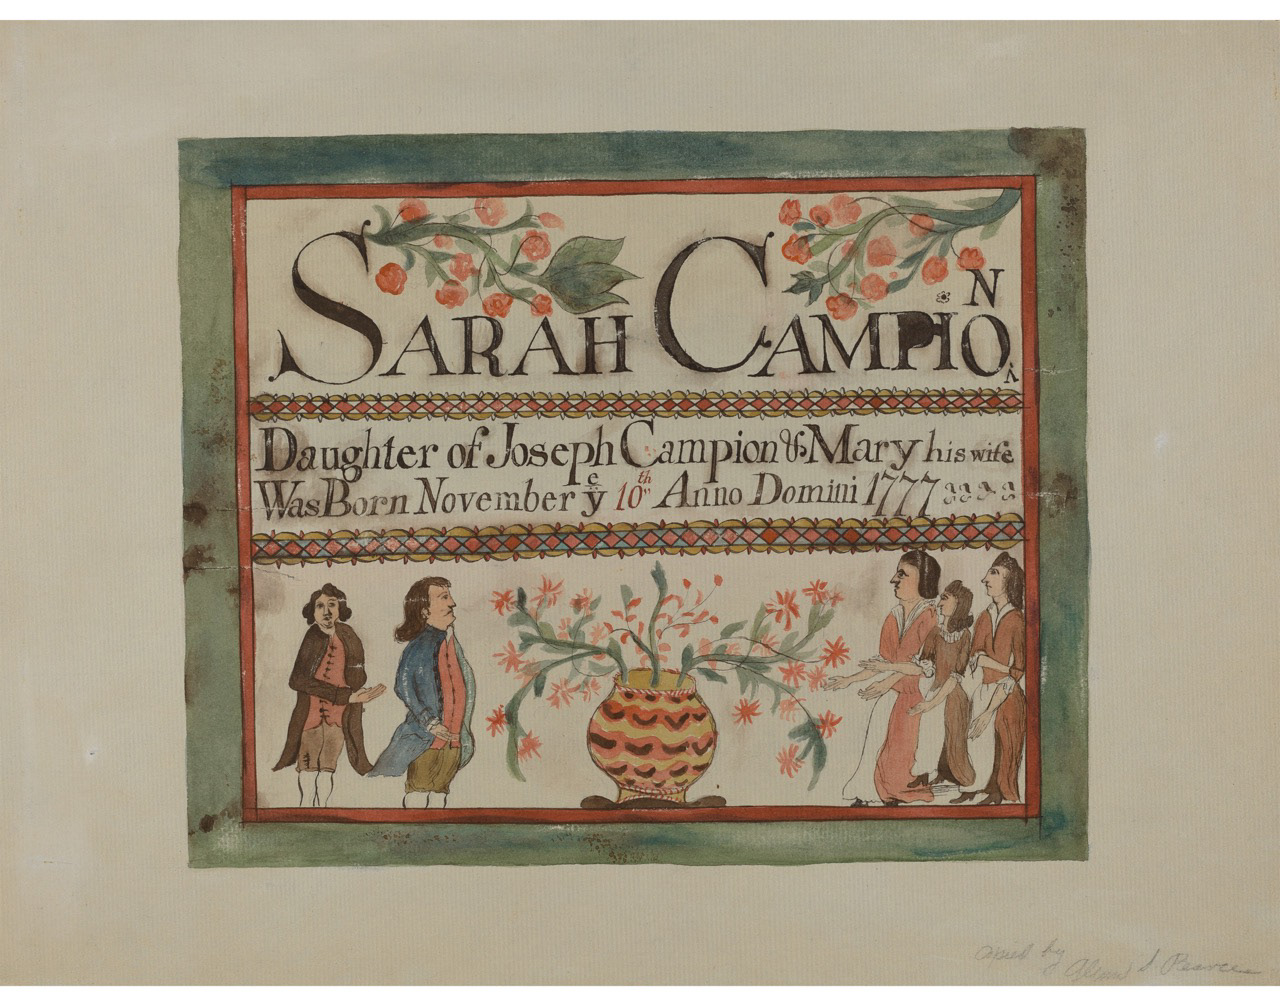 SARAH CAMPION
Daughter of Joseph Campion & Mary his wife
Was Born November yͤ 10th Anno Domini 1777
copied by Pearce